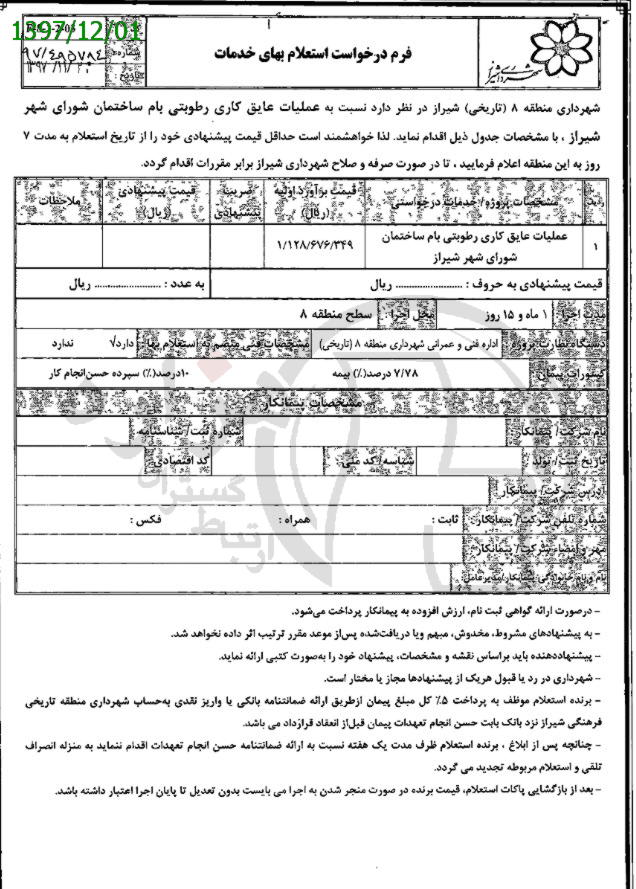 1397/12/01
شماره:
۹۷/۴۸۵۷۸۴
تاریخ:
فرم درخواست استعلام بهای خدمات
شهرداری منطقه ۸ (تاریخی) شیراز در نظر دارد نسبت به عملیات عایق کاری رطوبتی بام ساختمان شورای شهر
شیراز ، با مشخصات جدول ذیل اقدام نماید. لذا خواهشمند است حداقل قیمت پیشنهادی خود را از تاریخ استعلام به مدت ۷
روز به این منطقه اعلام فرمایید ، تا در صورت صرفه و صلاح شهرداری شیراز برابر مقررات اقدام گردد.
ردیف مشخصات پروژه/ خدمات درخواستی قیمت برآورد اولیه (ریال) ضریب پیشنهادی قیمت پیشنهادی (ریال) ملاحظات
۱ عملیات عایق کاری رطوبتی بام ساختمان ۱/۱۲۸/۶۷۶/۳۴۹
شورای شهر شیراز
قیمت پیشنهادی به حروف : ........................ ریال به عدد : ........................ ریال
مدت اجرا : ۱ ماه و ۱۵ روز محل اجرا : سطح منطقه ۸
دستگاه نظارت پروژه : اداره فنی و عمرانی شهرداری منطقه ۸ (تاریخی) مشخصات فنی منضم به استعلام بها : دارد√ ندارد
کسورات پیمان: ۷/۷۸ درصد(٪) بیمه ۱۰درصد(٪) سپرده حسن‌انجام کار
مشخصات پیمانکار
نام شرکت/ پیمانکار: شماره ثبت/ شناسنامه :
تاریخ ثبت/ تولد : شناسه/ کد ملی : کد اقتصادی :
آدرس شرکت/ پیمانکار:
شماره تلفن شرکت/ پیمانکار: ثابت : همراه : فکس :
مهر و امضاء شرکت/ پیمانکار:
نام و نام خانوادگی: پیمانکار/مدیرعامل:
– درصورت ارائه گواهی ثبت نام، ارزش افزوده به پیمانکار پرداخت می‌شود.
– به پیشنهادهای مشروط، مخدوش، مبهم ویا دریافت‌شده پس‌از موعد مقرر ترتیب اثر داده نخواهد شد.
– پیشنهاددهنده باید براساس نقشه و مشخصات، پیشنهاد خود را به‌صورت کتبی ارائه نماید.
– شهرداری در رد یا قبول هریک از پیشنهادها مجاز یا مختار است.
– برنده استعلام موظف به پرداخت ۵٪ کل مبلغ پیمان ازطریق ارائه ضمانتنامه بانکی یا واریز نقدی به‌حساب شهرداری منطقه تاریخی
فرهنگی شیراز نزد بانک بابت حسن انجام تعهدات پیمان قبل‌از انعقاد قرارداد می باشد.
– چنانچه پس از ابلاغ ، برنده استعلام ظرف مدت یک هفته نسبت به ارائه ضمانتنامه حسن انجام تعهدات اقدام ننماید به منزله انصراف
تلقی و استعلام مربوطه تجدید می گردد.
– بعد از بازگشایی پاکات استعلام، قیمت برنده در صورت منجر شدن به اجرا می بایست بدون تعدیل تا پایان اجرا اعتبار داشته باشد.